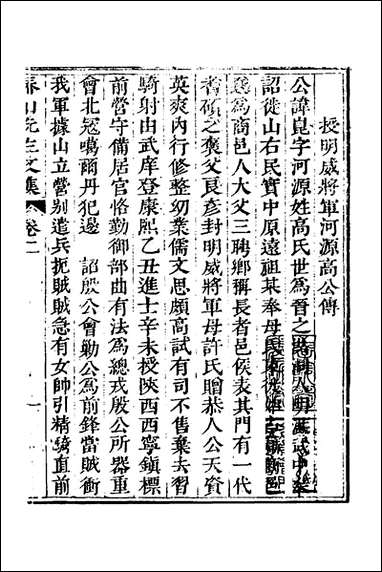 授明威將軍河源高公傳
公諱崑字河源姓高氏世為晉之 人明 武中奉
詔徙山右民實中原遠祖某奉母
襄為商邑人大父三聘鄉稱長者邑侯表其門有一代
耆碩之褒父良彥封明威將軍母許氏贈恭人公天資
英爽內行修整幼業儒文思頗高試有司不售棄去習
騎射由武庠登康熙乙丑進士辛未授陝西西寧鎮標
前營守備居官恪勤御部曲有法為總戎殷公所器重
會北寇噶爾丹犯邊 詔殷公會勦公為前鋒當賊衝
我軍據山立營別遣兵扼賊賊急有女帥引精騎直前
山先生文集 卷二